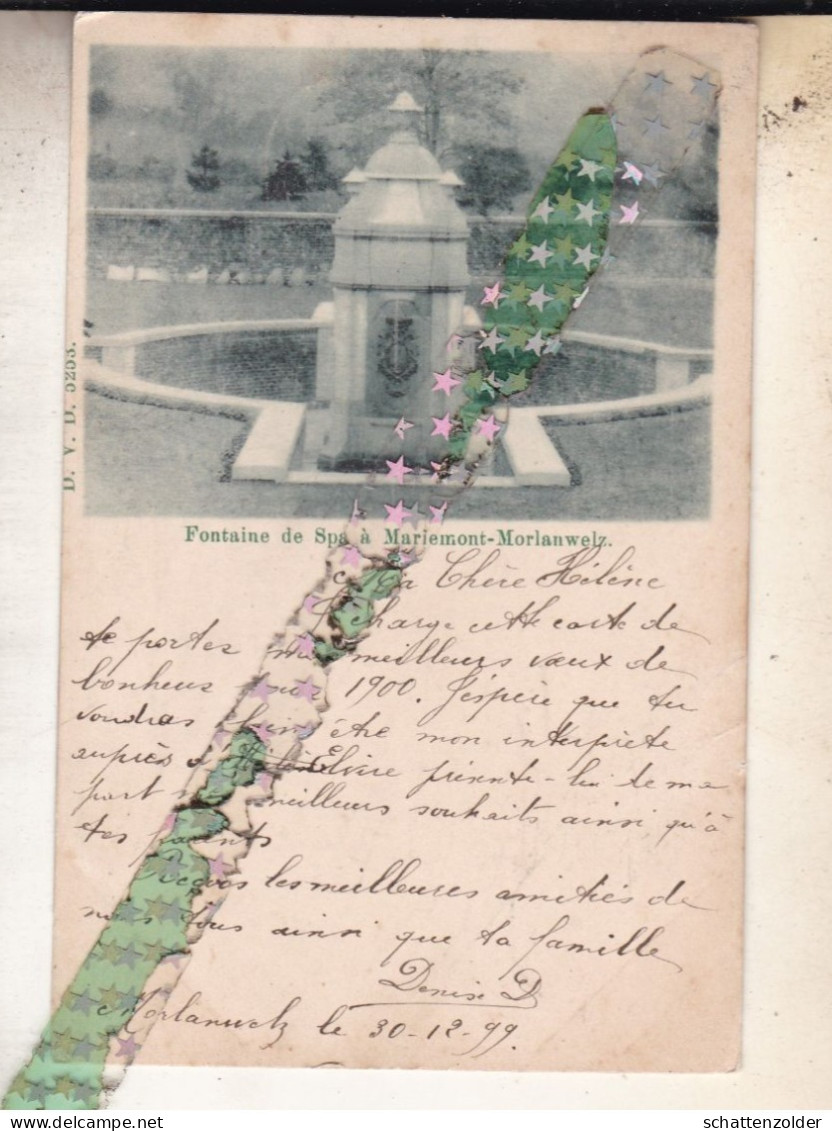 D. V. D. 5253.
Fontaine de Spa à Mariemont-Morlanwelz.
Ma Chère Hélène
Je charge cette carte de
te porter mes meilleurs vœux de
bonheur pour 1900. J'espère que tu
voudras bien être mon interprète
auprès d' Elvire présente-lui de ma
part meilleurs souhaits ainsi qu'à
tes parents
Reçois les meilleures amitiés de
nous tous ainsi que ta famille
Denise D
Morlanwelz le 30-12-99.
delcampe.net
schattenzolder